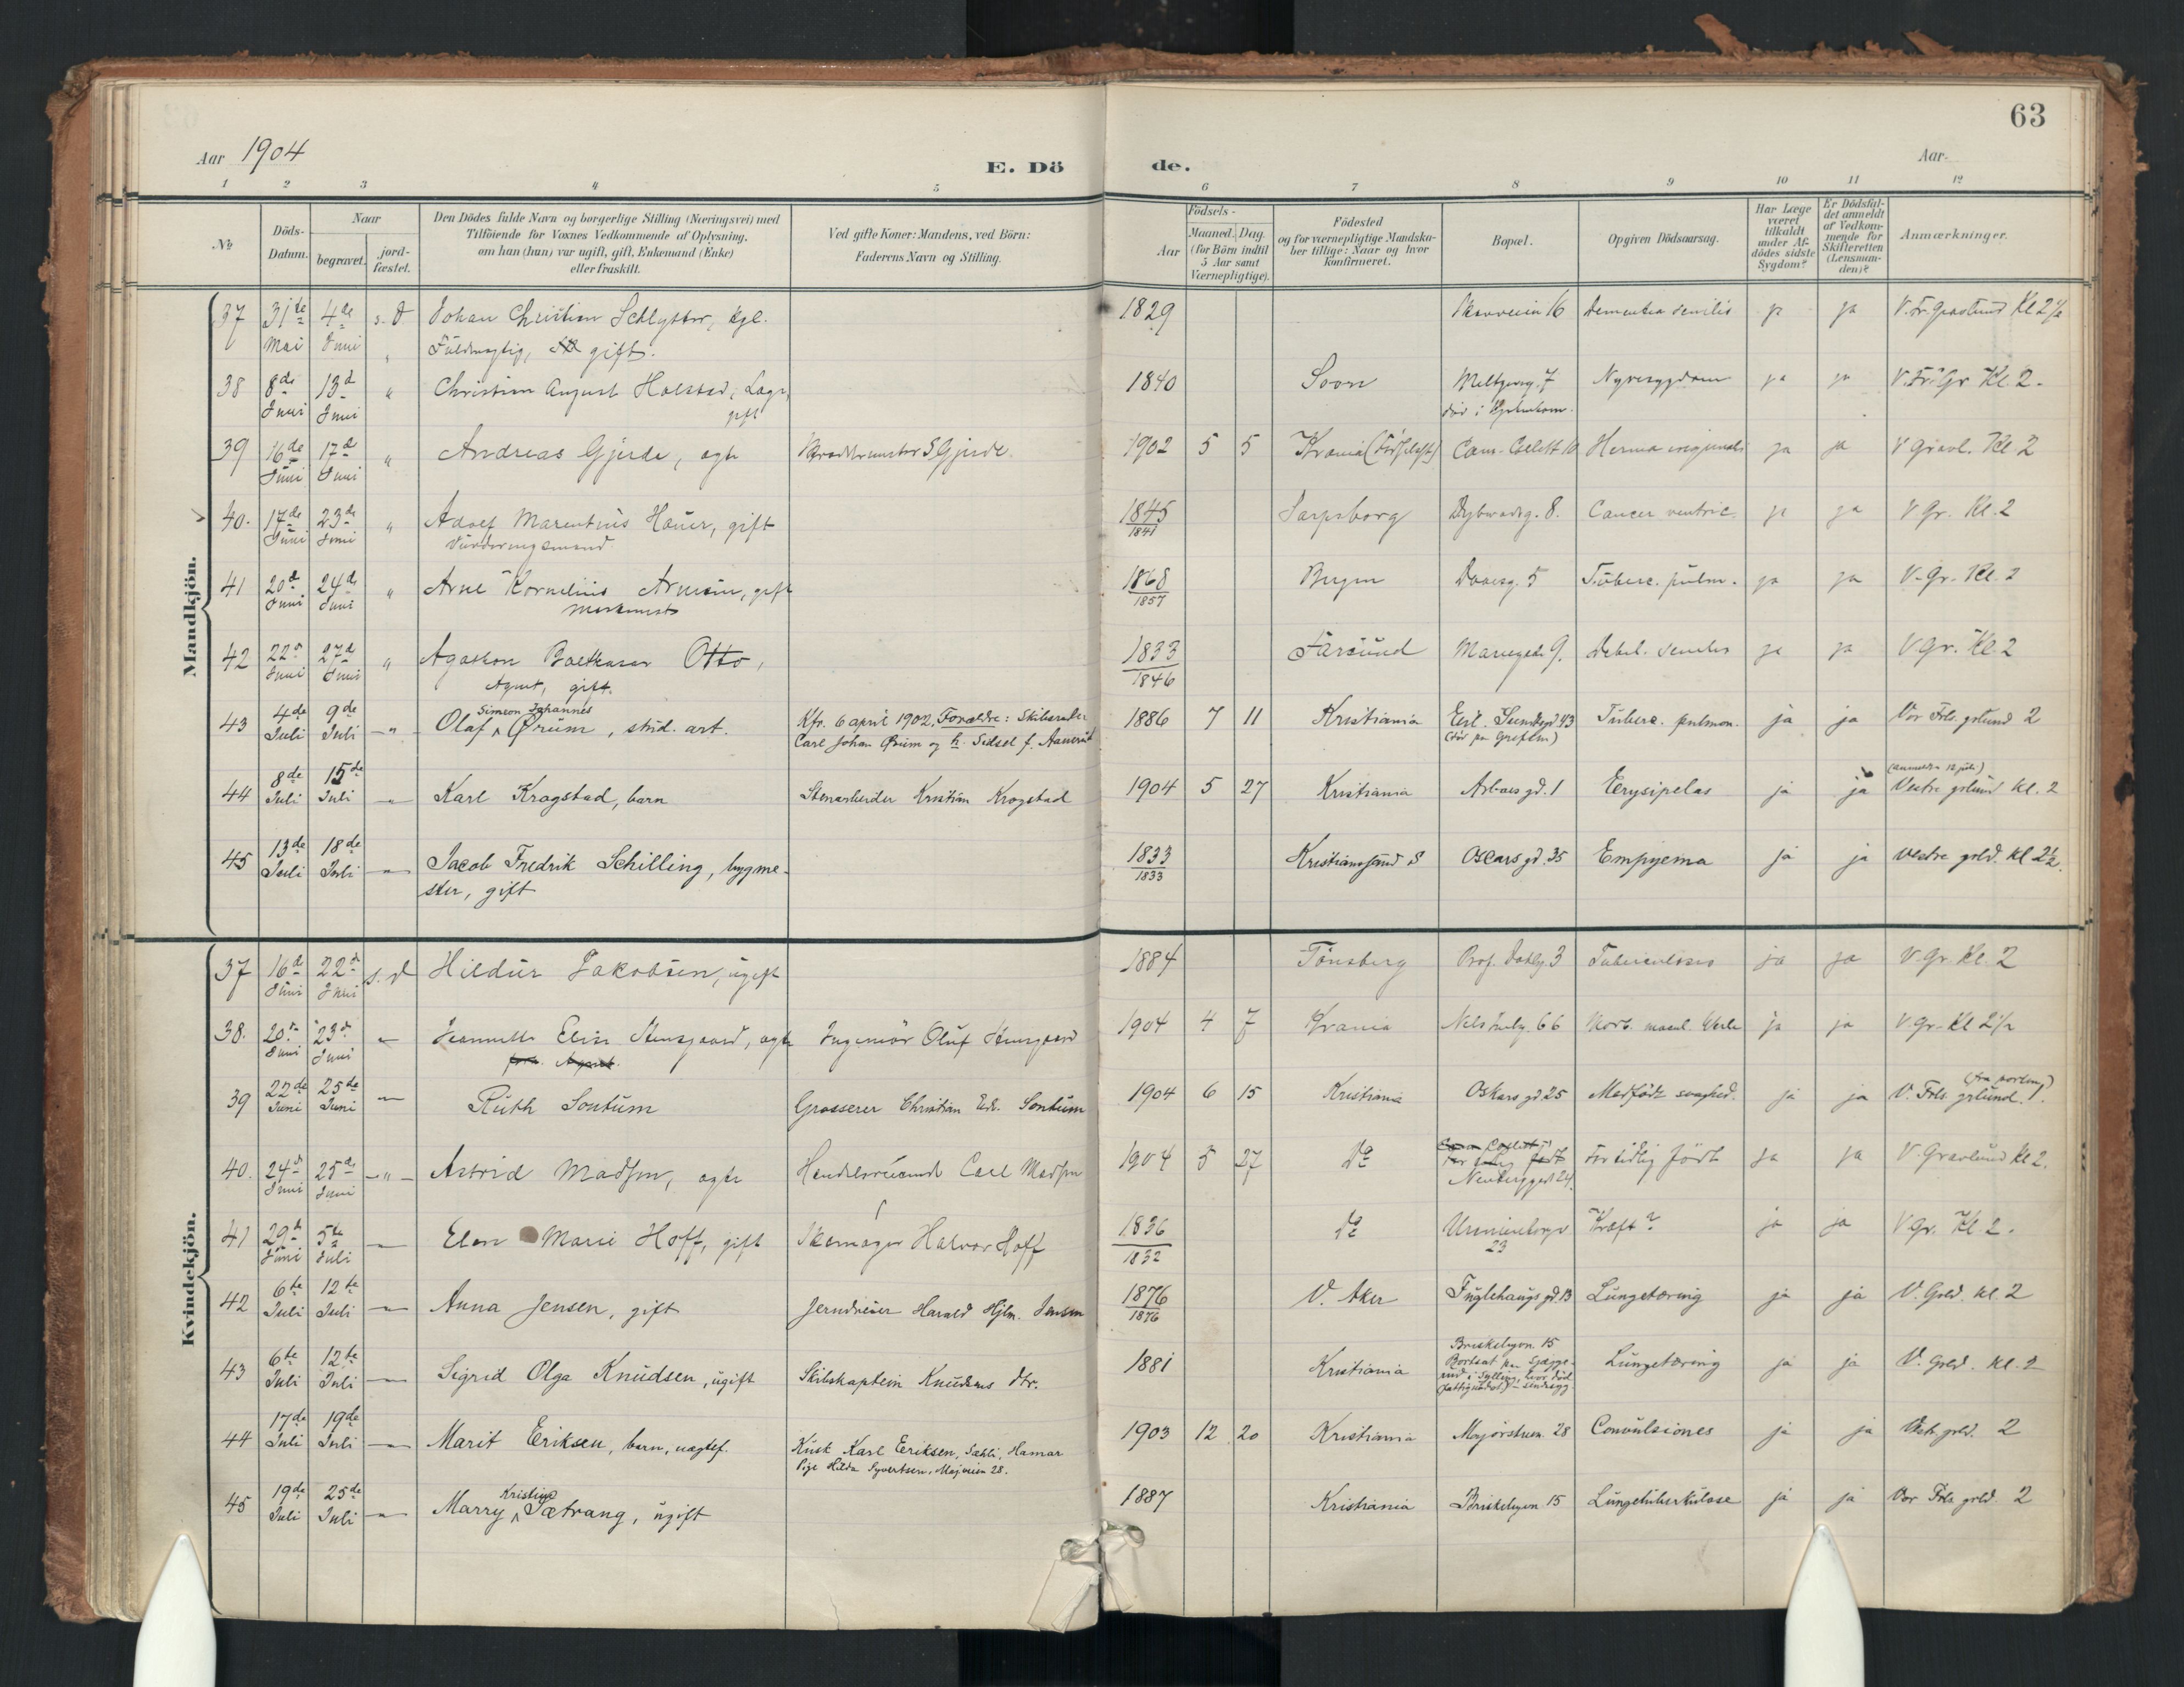 63
Aar 1904
E. Dö de.
Aar.
1 2 3 4 5 6 7 8 9 10 11 12
№
Döds-Datum.
Naar
begravet.
jord-fæstet.
Den Dödes fulde Navn og borgerlige Stilling (Næringsvei) med
Tilföiende for Voxnes Vedkommende af Oplysning,
om han (hun) var ugift, gift, Enkemand (Enke)
eller fraskilt.
Ved gifte Koner: Mandens, ved Börn:
Faderens Navn og Stilling.
Födsels-
Aar
Maaned. Dag.
(for Börn indtil
5 Aar samt
Værnepligtige).
Födested
og for værnepligtige Mandska-
ber tillige: Naar og hvor
konfirmeret.
Bopæl.
Opgiven Dödsaarsag.
Har Læge
været
tilkaldt
under Af-
dödes sidste
Sygdom?
Er Dödsfal-
det anmeldt
af Vedkom-
mende for
Skifteretten
(Lensman-
den)?
Anmærkninger.
Mandkjön.
37 31te Mai 4de Juni s. D Johan Christian Schlytter, kgl. 1829 16 Dementia senilis ja ja V. Fr. Gravlund Kl 2 ½
Fuldmægtig, gift.
38 8de Juni 13d Juni " Christian August Holstad, gift 1840 Soon Meltzersg. 7 Nyresygdom ja ja V. Fr. Gr Kl. 2.
död i
39 16de Juni 17d Juni " Andreas Gjerde, ægte S. Gjerde 1902 5 5 Krania Cam. Collett 10 Hernia ja ja V Gravl. Kl 2
40. 17de Juni 23de Juni " Adolf Marentius Hauer, gift 1845 Sarpsborg Dybwadsg. 8. Cancer ventric. ja ja V Gr. Kl. 2
Vurderingsmand 1841
41 20d Juni 24de Juni " Arne Kornelius Arnesen, gift 1868 Bergen Daaesg. 5 Tuberc. pulm. ja ja V. Gr. Kl. 2
1857
42 22d Juni 27d Juni " Balthazar Otto, 1833 Farsund Mariegade 9. Debil. senilis ja ja V Gr. Kl. 2
Agent, gift. 1846
43 4de Juli 9de Juli " Olaf Simeon Johannes Ørum, stud. art. Kfr. 6 april 1902. Forældre: Skibsreder 1886 7 11 Kristiania Eil. Sundtsgd 43 Tuberc. pulmon. ja ja Vor Frls. grlund 2
Carl Johan Ørum og h. Sidsel f. (död på Grefsen)
44 8de Juli 15de Juli " Karl Krogstad, barn Stenarbeider Kristian Krogstad 1904 5 27 Kristiania Arboesgd. 1 Erysipelas ja ja (anmeldt 12 juli)
Vestre grlund kl. 2
45 13de Juli 18de Juli " Jacob Fredrik Schilling, bygme- 1833 Kristianssund S Oscarsgd. 35 Empyema ja ja Vestre grld. kl 2½.
ster, gift 1833
Kvindekjön.
37 16d Juni 22d Juni s. D Hildur Jakobsen, ugift 1884 Tönsberg Prof. Dahlsg 3 Tuberculosis ja ja V Gr. Kl. 2
38. 20d Juni 23d Juni " Jeannette Elise Stensgaard, ægte Ingeniör Oluf Stensgaard 1904 4 7 Krania Nels Juelsg. 66 Morb. macul. Werlh ja ja V. Gr. Kl 2½
39 22de Juni 25de Juni " Ruth Sontum Grosserer Christian Edv. Sontum 1904 6 15 Kristiania Oskarsgd. 25 Medfödt svaghed. ja ja V. Frls. grlund. 1.
40. 24d Juni 25de Juni " Astrid Madsen, ægte Handelsreisende Carl Madsen 1904 5 27 do Neuberggd. 24 For tidlig födt ja ja V. Gravlund Kl 2.
41 29d Juni 5te Juli " Elen Marie Hoff, gift Skomager Halvor Hoff 1836 do Uranienborgv 23 Kræft? ja ja V Gr. Kl 2.
1832
42 6te Juli 12te Juli " Anna Jensen, gift Jerndreier Harald Hjlm. Jensen 1876 V. Aker Fuglehaugsgd. 13 Lungetæring ja ja V. Grld. kl. 2
1876
43 6te Juli 12te Juli " Sigrid Olga Knudsen, ugift Skibskaptein Knudsens dtr. 1881 Kristiania Briskebyvn 15 Lungetæring ja ja V. Grld. kl. 2
44 17de Juli 19de Juli " Marit Eriksen, barn, uægtef. Kusk Karl Eriksen, Sahli, Hamar 1903 12 20 Kristiania Majorstuen. 28 Convulsiones ja ja Vestr. grld. 2
Pige Hilda Syvertsen, Majveien 28.
45 19de Juli 25de Juli " Marry Kristine Sætrang, ugift 1887 Kristiania Briskebyvn 15 Lungetuberkulose ja ja Vor Frls. grld. 2